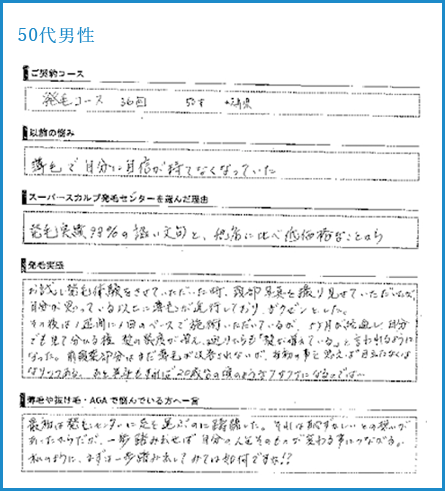 50代男性
ご契約コース
発毛コース 36回 50才
以前の悩み
薄毛で自分に自信が持てなくなっていた
スーパースカルプ発毛センターを選んだ理由
発毛実感99%の謳い文句と、他店に比べ低価格なことから
発毛実感
お試し発毛体験をさせていただいた時、頭部写真を撮り見せていただいたが、
自分が思っている以上に薄毛が進行しており、ガクゼンとした。
その後は1週間に1回のペースで施術いただいているが、ヶ月が経過し自分
でも見て分かる程 髪の密度が増え、周りからも「髪が増えている」と言われるように
なった。前頭葉部分はまだ薄毛が改善されないが、当初の事を思えば目立たなくは
なりつつある。あと半年もすれば20歳台の頃のようなフサフサになるのでは…
薄毛や抜け毛・AGAで悩んでいる方へ一言
最初は発毛センターに足を運ぶのに躊躇した。それは恥ずかしいとの思いが
あったからだが、一歩踏み出せば自分の人生そのものが変わる事につながる。
私のように、まずは一歩踏み出してみては如何ですか!?